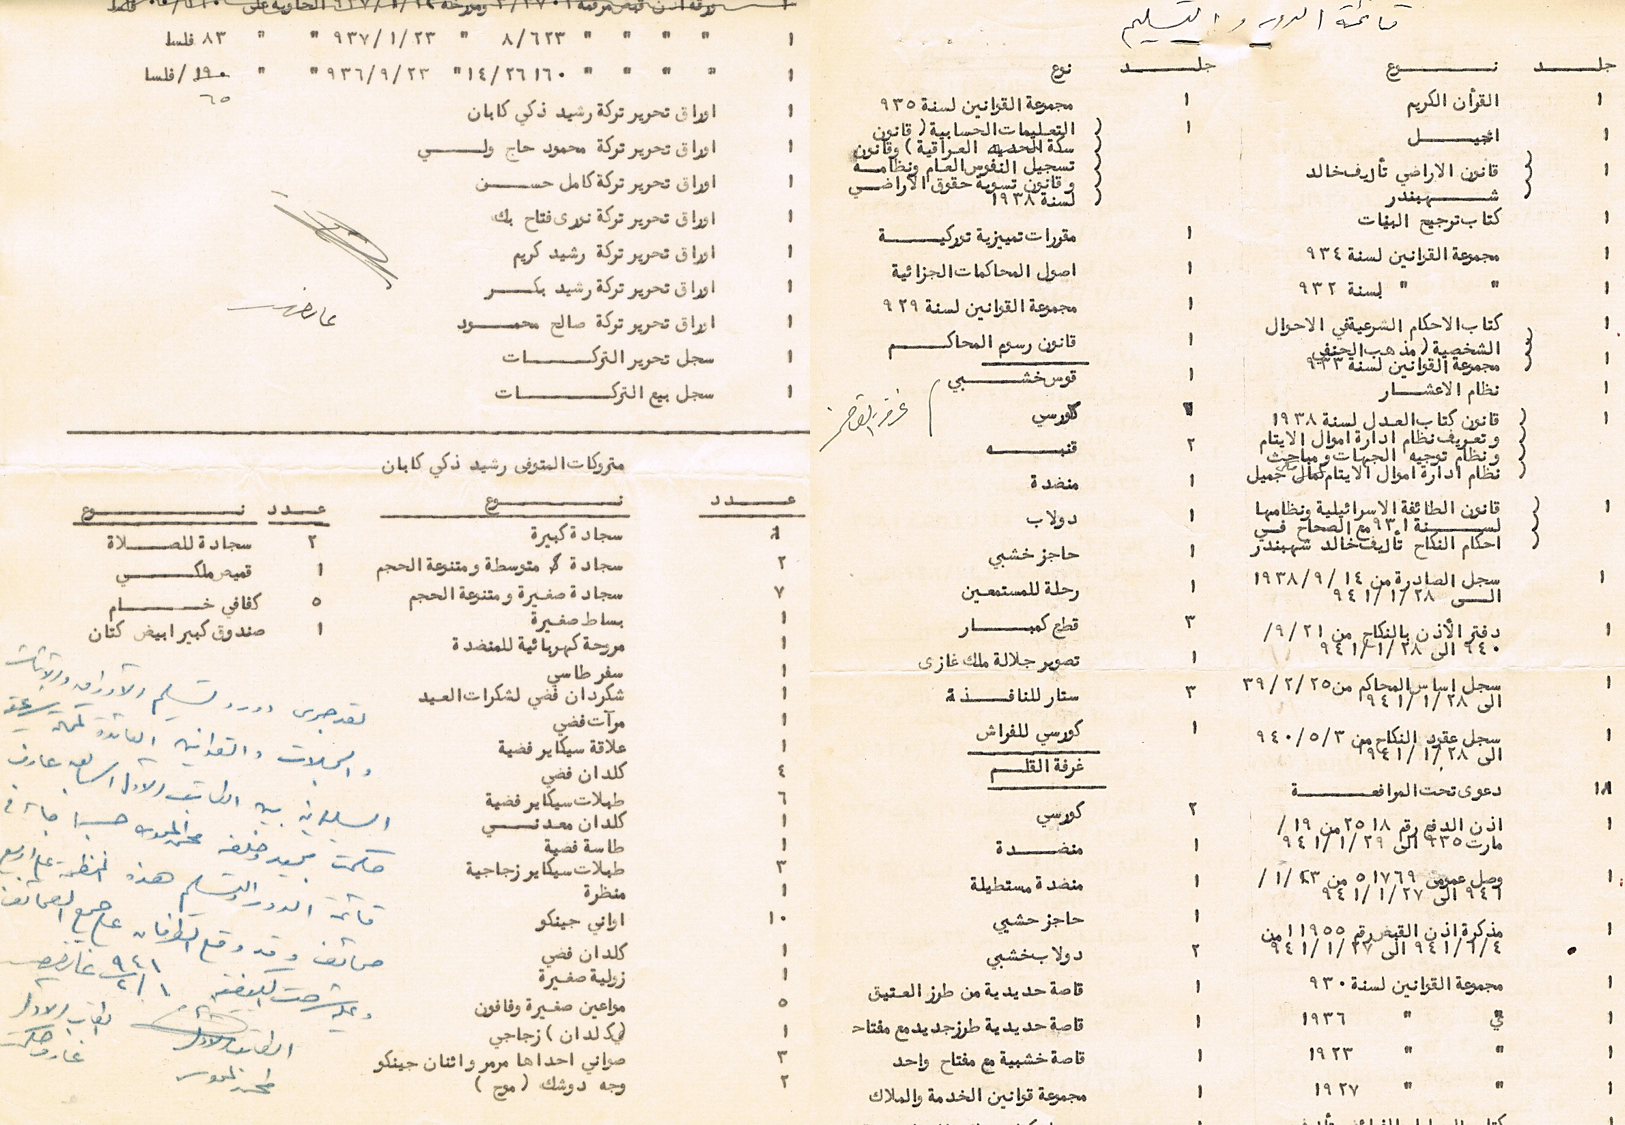 قائمة الدور والتسليم
جلد نوع
١ القرأن الكريم
١ انجيل
١ قانون الاراضي تأليف خالد
شهبندر
١ كتاب ترجيح البينات
١ مجموعة القوانين لسنة ٩٣٤
١ " " لسنة ٩٣٢
١ كتاب الاحكام الشرعية في الاحوال
الشخصية ( مذهب الحنفي
١ مجموعة القوانين لسنة ٩٣٣
١ نظام الاعشار
١ قانون كتاب العدل لسنة ١٩٣٨
وتعريف نظام ادارة اموال الايتام
ونظام توجيه الجهات ومباحث
نظام ادارة اموال الايتام كمال جميل
١ قانون الطائفة الاسرائيلية ونظامها
لسنة ٩٣١ مع الصحاح في
احكام النكاح تأليف خالد شهبندر
١ سجل الصادرة من ١٤ /٩/ ١٩٣٨
الى ٢٨ /١/ ٩٤١
١ دفتر الأذن بالنكاح من ٢١ /٩/
٩٤٠ الى ٢٨ /١/ ٩٤١
١ سجل اساس المحاكم من ٢٥ /٢/ ٣٩
الى ٢٨ /١/ ٩٤١
١ سجل عقود النكاح من ٣ /٥/ ٩٤٠
الى ٢٨ /١/ ٩٤١
١٨ دعوى تحت المرافعة
١ اذن الدفع رقم ٢٥١٨ من ١٩ /
مارت ٩٣٥ الى ٢٩ /١/ ٩٤١
١ وصل عمومي ٥١٧٦٩ من /١/
٩٤١ الى ٢٧ /١/ ٩٤١
١ مذكرة اذن القبض رقم ١١٩٥٥ من
٤ /١/ ٩٤١ الى ٢٧ /١/ ٩٤١
١ مجموعة القوانين لسنة ٩٣٠
١ " " ١٩٣٦
١ " " ١٩٢٣
١ " " ١٩٢٧
جلد نوع
١ مجموعة القوانين لسنة ٩٣٥
١ التعليمات الحسابية ( قانون
سكة الحديد العراقية ) وقانون
تسجيل النفوس العام ونظامه
وقانون تسوية حقوق الاراضي
لسنة ١٩٣٨
١ مقررات تمييزية توركية
١ اصول المحاكمات الجزائية
١ مجموعة القوانين لسنة ٩٢٩
١ قانون رسوم المحاكم
١ قوس خشبي
كورسي
غرفة القاضي
٢ قنبه
١ منضدة
١ دولاب
١ حاجز خشبي
١ رحلة للمستمعين
٣ قطع كمبار
١ تصوير جلالة ملك غازى
٣ ستار للنافذة
١ كورسي للفراش
غرفة القلم
٢ كورسي
١ منضدة
١ منضدة مستطيلة
١ حاجز خشبي
٢ دولاب خشبي
١ قاصة حديدية من طرز العتيق
١ قاصة حديدية طرز جديد مع مفتاح
١ قاصة خشبية مع مفتاح واحد
١ مجموعة قوانين الخدمة والملاك
١ " " " " ٨/٦٢٣ " ٩٣٧/١/٢٣ " " ٨٣ فلسا
١ " " " " ١٤/٢٦١٦٠ " ٩٣٦/٩/٢٣ " " ١٩٠/ فلسا
٦٥
١ اوراق تحرير تركة رشيد ذكي كابان
١ اوراق تحرير تركة محمود حاج ولي
١ اوراق تحرير تركة كامل حسن
١ اوراق تحرير تركة نورى فتاح بك
١ اوراق تحرير تركة رشيد كريم
١ اوراق تحرير تركة رشيد بكر
١ اوراق تحرير تركة صالح محمود
١ سجل تحرير التركات
١ سجل بيع التركات
متروكات المتوفى رشيد ذكي كابان
عدد نوع
سجادة كبيرة
٢ سجادة متوسطة ومتنوعة الحجم
٧ سجادة صغيرة ومتنوعة الحجم
١ بساط صغيرة
١ مروحة كهربائية للمنضدة
١ سفر طاسي
١ شكردان فضي لشكرات العيد
١ مرآت فضي
١ علاقة سيكاير فضية
٤ كلدان فضي
٦ طبلات سيكاير فضية
١ كلدان معدني
١ طاسة فضية
٣ طبلات سيكاير زجاجية
١ منظرة
١٠ اواني جينكو
١ كلدان فضي
١ زولية صغيرة
٥ مواعين صغيرة وفافون
١ ( كلدان ) زجاجي
٣ صواني احداها مرمر واثنان جينكو
٢ وجه دوشك ( موج )
عدد نوع
٢ سجادة للصلاة
١ قميص ملكي
٥ كفافي خام
١ صندوق كبير ابيض كتان
لقد جرى دور وتسليم الأوراق والاثاث
والسجلات والقوانين العائدة لمحكمة شرعية
السليمانية بين الكاتب الاول السابق عارف
حكمت وخلفه محمد حسبما جاء في
قائمة الدور والتسليم هذه المنظمة على اربع
صحائف وقد وقع الطرفان على جميع الصحائف
٩٤١/٢/١
الكاتب الاول
الكاتب الاول
عارف حكمت